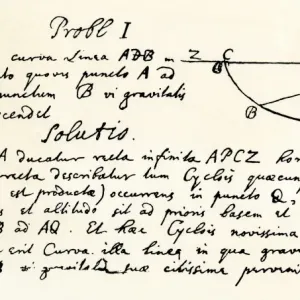 Probl I
curva Linea ADB in Z C
to quovis puncto A ad
punctum B vi gravitatis
scendet B
Solutio.
A ducatur recta infinita APCZ hor
recta describatur tum Cyclois quæcun
est productæ) occurrens in puncto Q,
s et altitudo sit ad prioris basem et
B ad AQ. Et hæc Cyclois novissima
erit Curva illa linea in qua grave
B vi gravitatis suæ citissime perveni